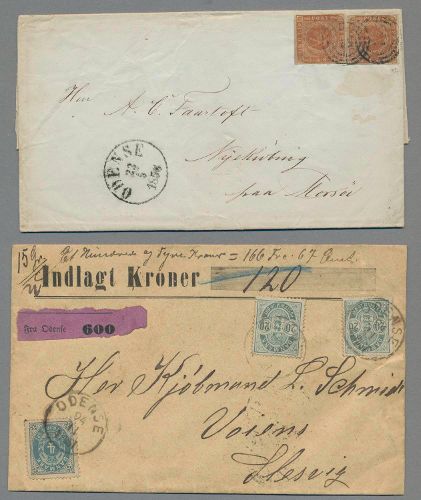 Herr A. C. Faartoft
Nykjöbing
paa Morsöe
ODENSE
22
5
1856
Et Hundrede og Tyve Kroner = 166 Frc. 67 Cent.
Indlagt Kroner 120
20 20
20 20
Fra Odense 600
ODENSE
Herr Kjöbmand L. Schmidt
Voiens
Slesvig
ODENSE
4